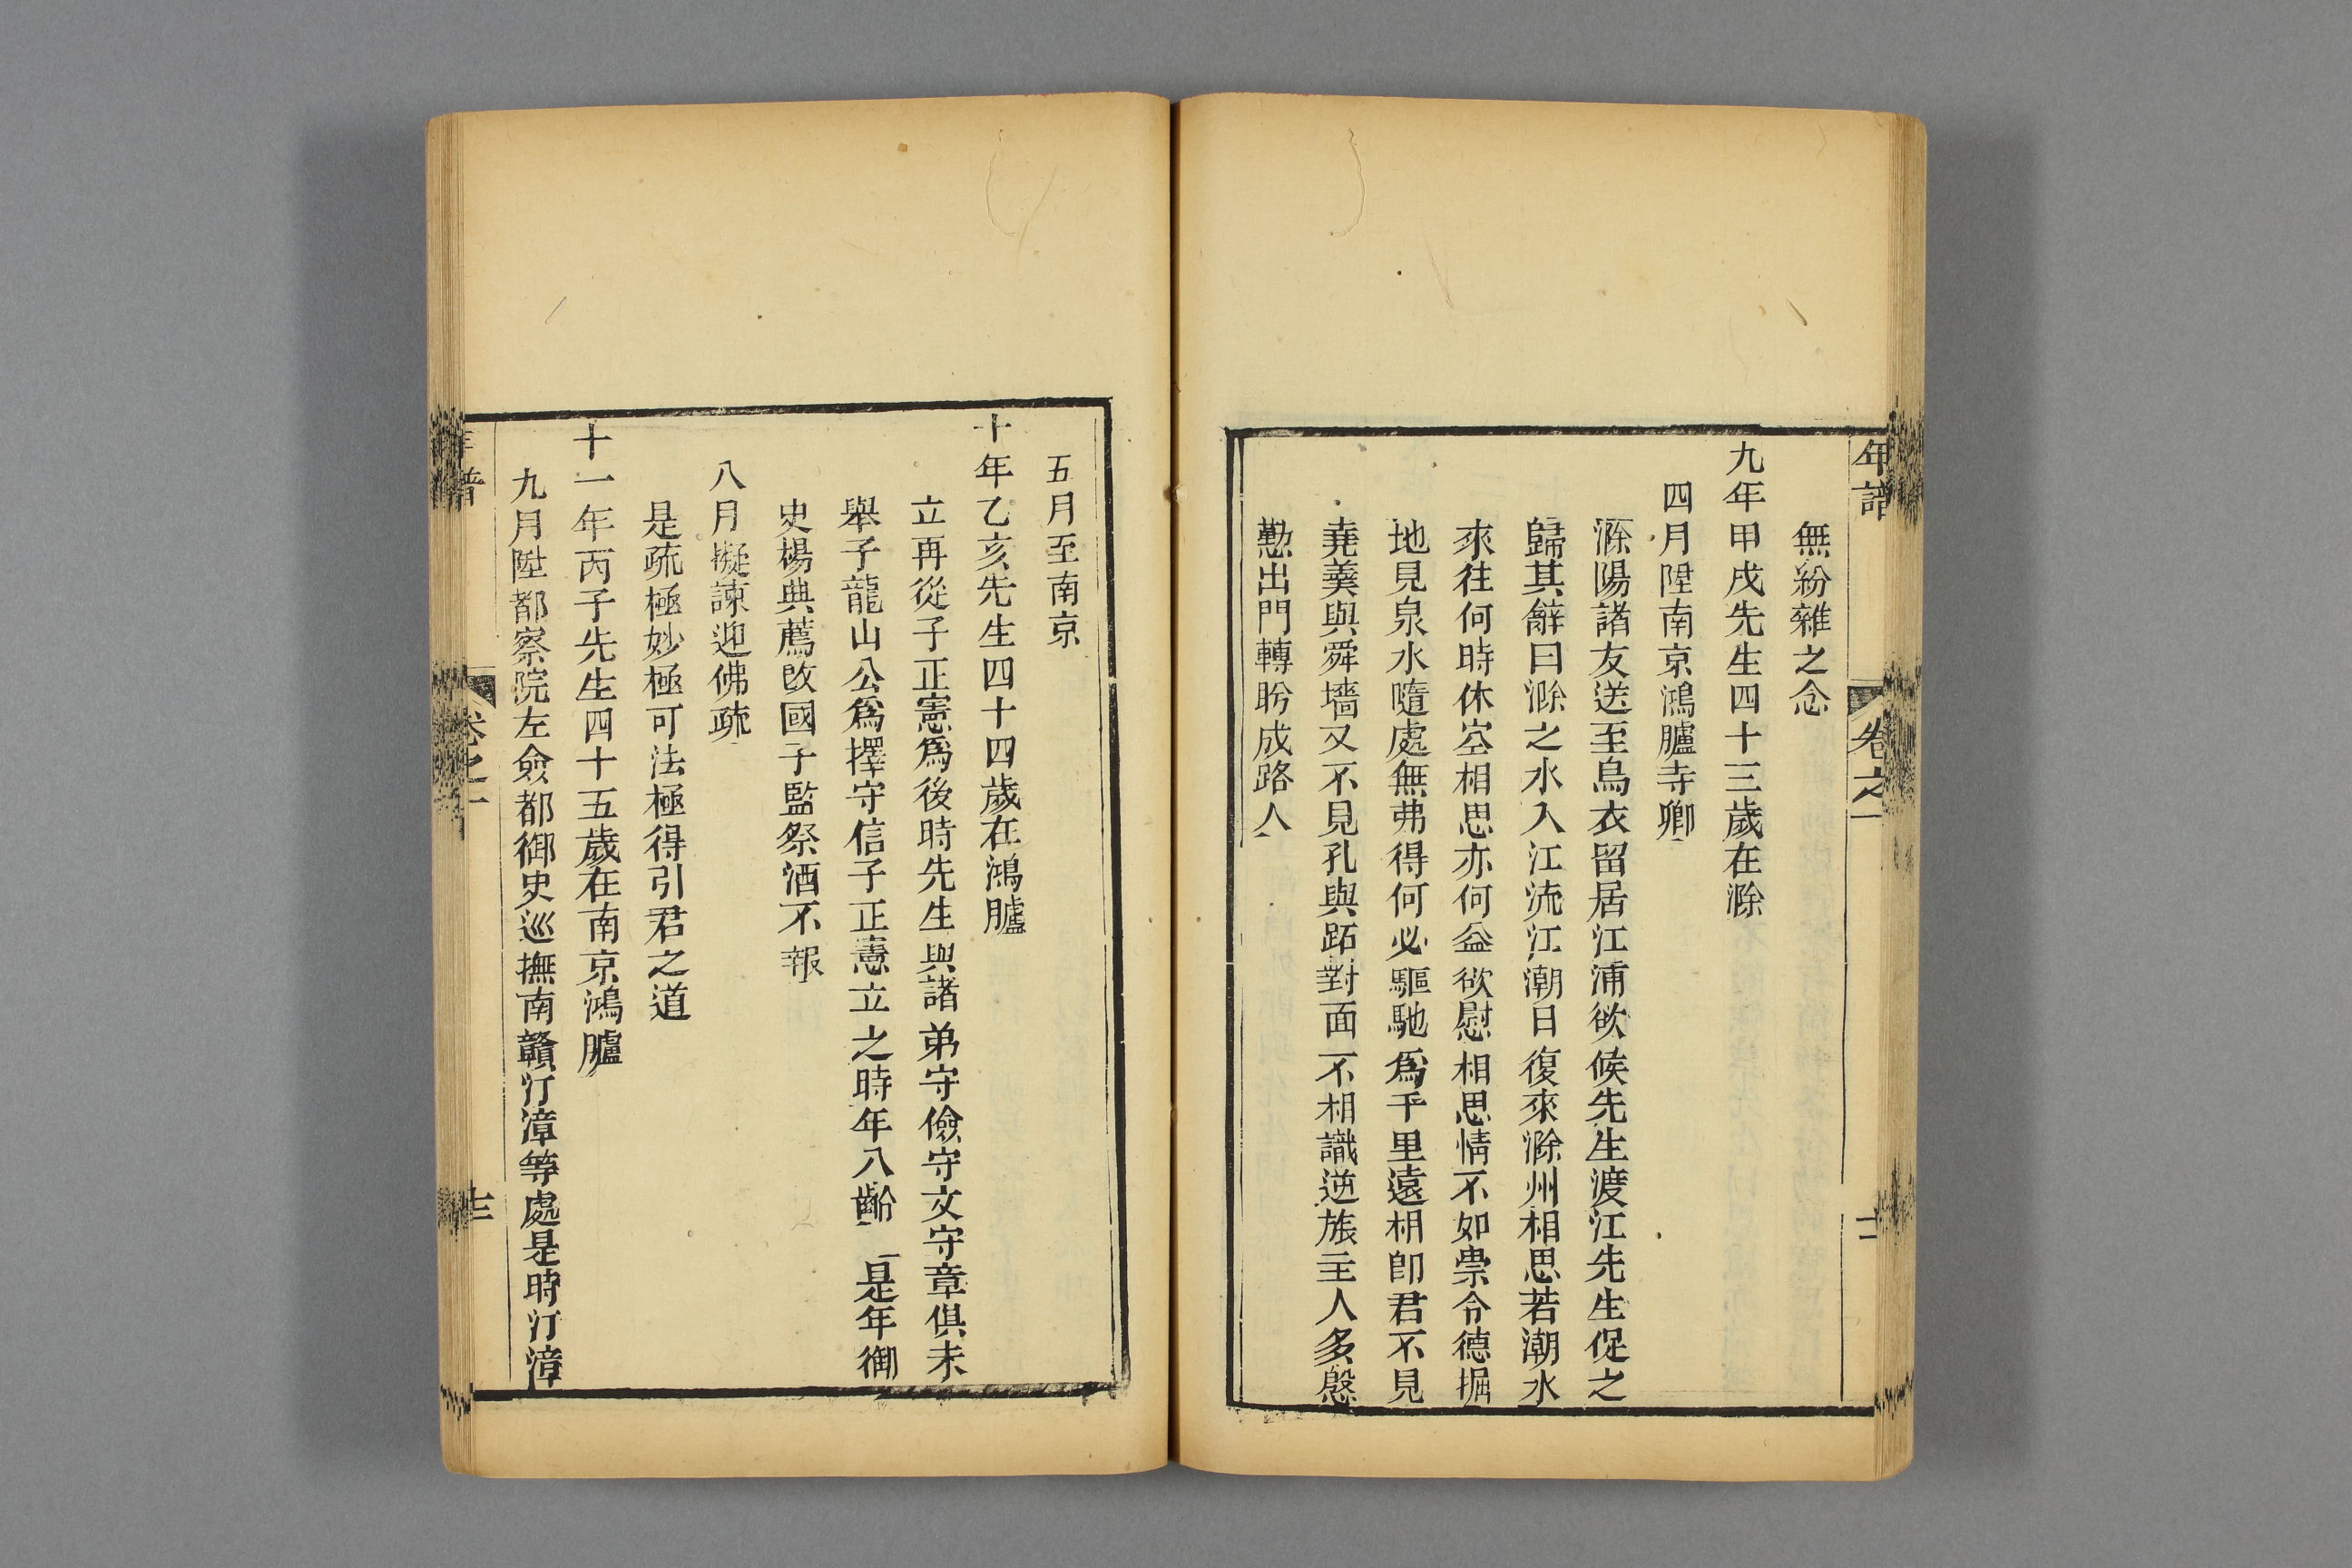 年譜
卷之一
十二
無紛雜之念
九年甲戌先生四十三歲在滁
四月陞南京鴻臚寺卿
滁陽諸友送至烏衣留居江浦欲候先生渡江先生促之
歸其辭曰滁之水入江流江潮日復來滁州相思若潮水
來往何時休空相思亦何益欲慰相思情不如崇令德掘
地見泉水隨處無弗得何必驅馳爲千里遠相卽君不見
堯羹與舜墻又不見孔與跖對面不相識逆旅主人多慇
懃出門轉盻成路人
五月至南京
十年乙亥先生四十四歲在鴻臚
立再從子正憲爲後時先生與諸弟守儉守文守章俱未
舉子龍山公爲擇守信子正憲立之時年八齡 是年御
史楊典薦改國子監祭酒不報
八月擬諫迎佛疏
是疏極妙極可法極得引君之道
十一年丙子先生四十五歲在南京鴻臚
九月陞都察院左僉都御史巡撫南贛汀漳等處是時汀漳
年譜
卷之一